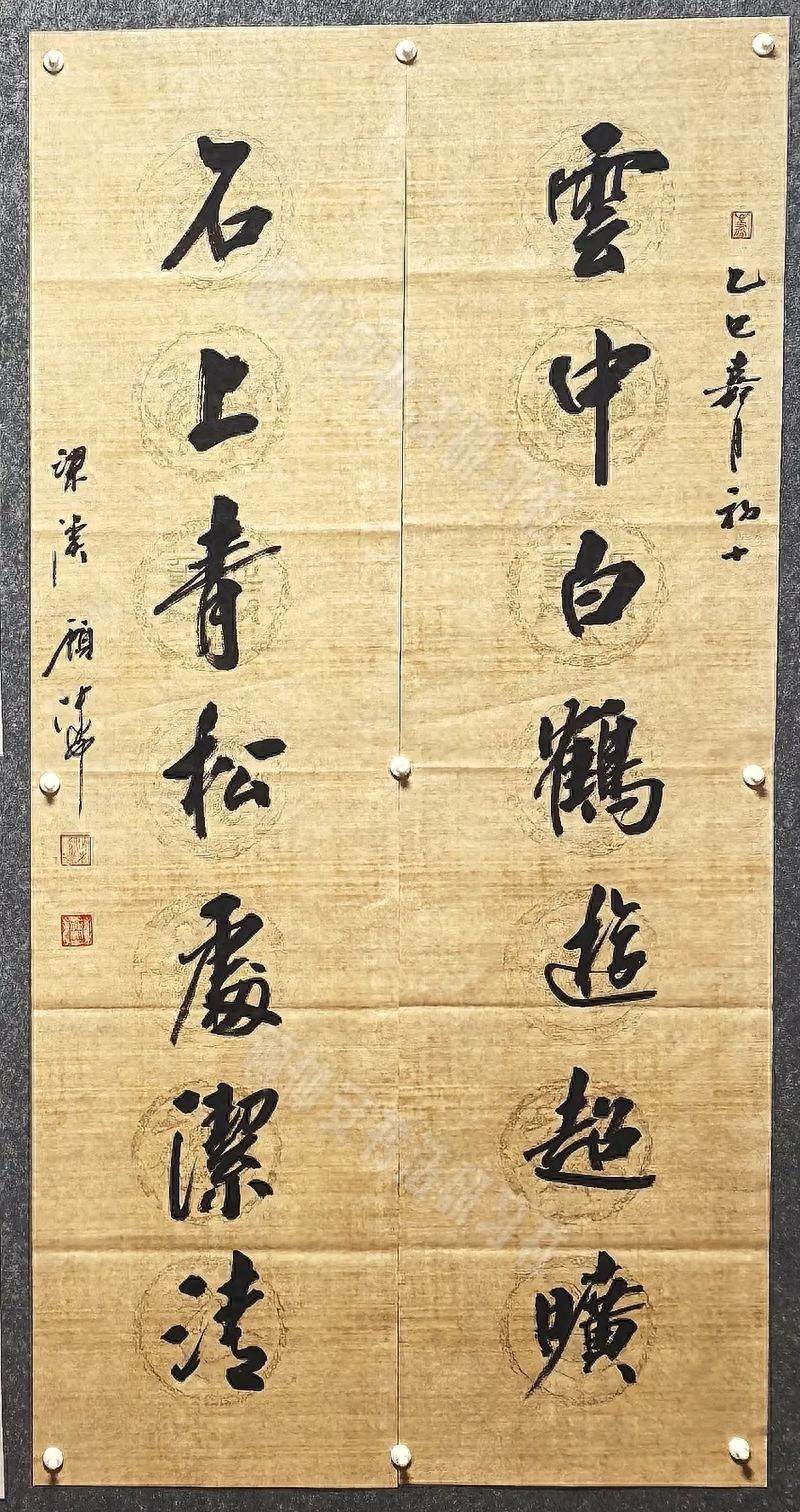 乙巳嘉月初十
雲中白鶴遊超曠
石上青松處潔清
梁溪顧